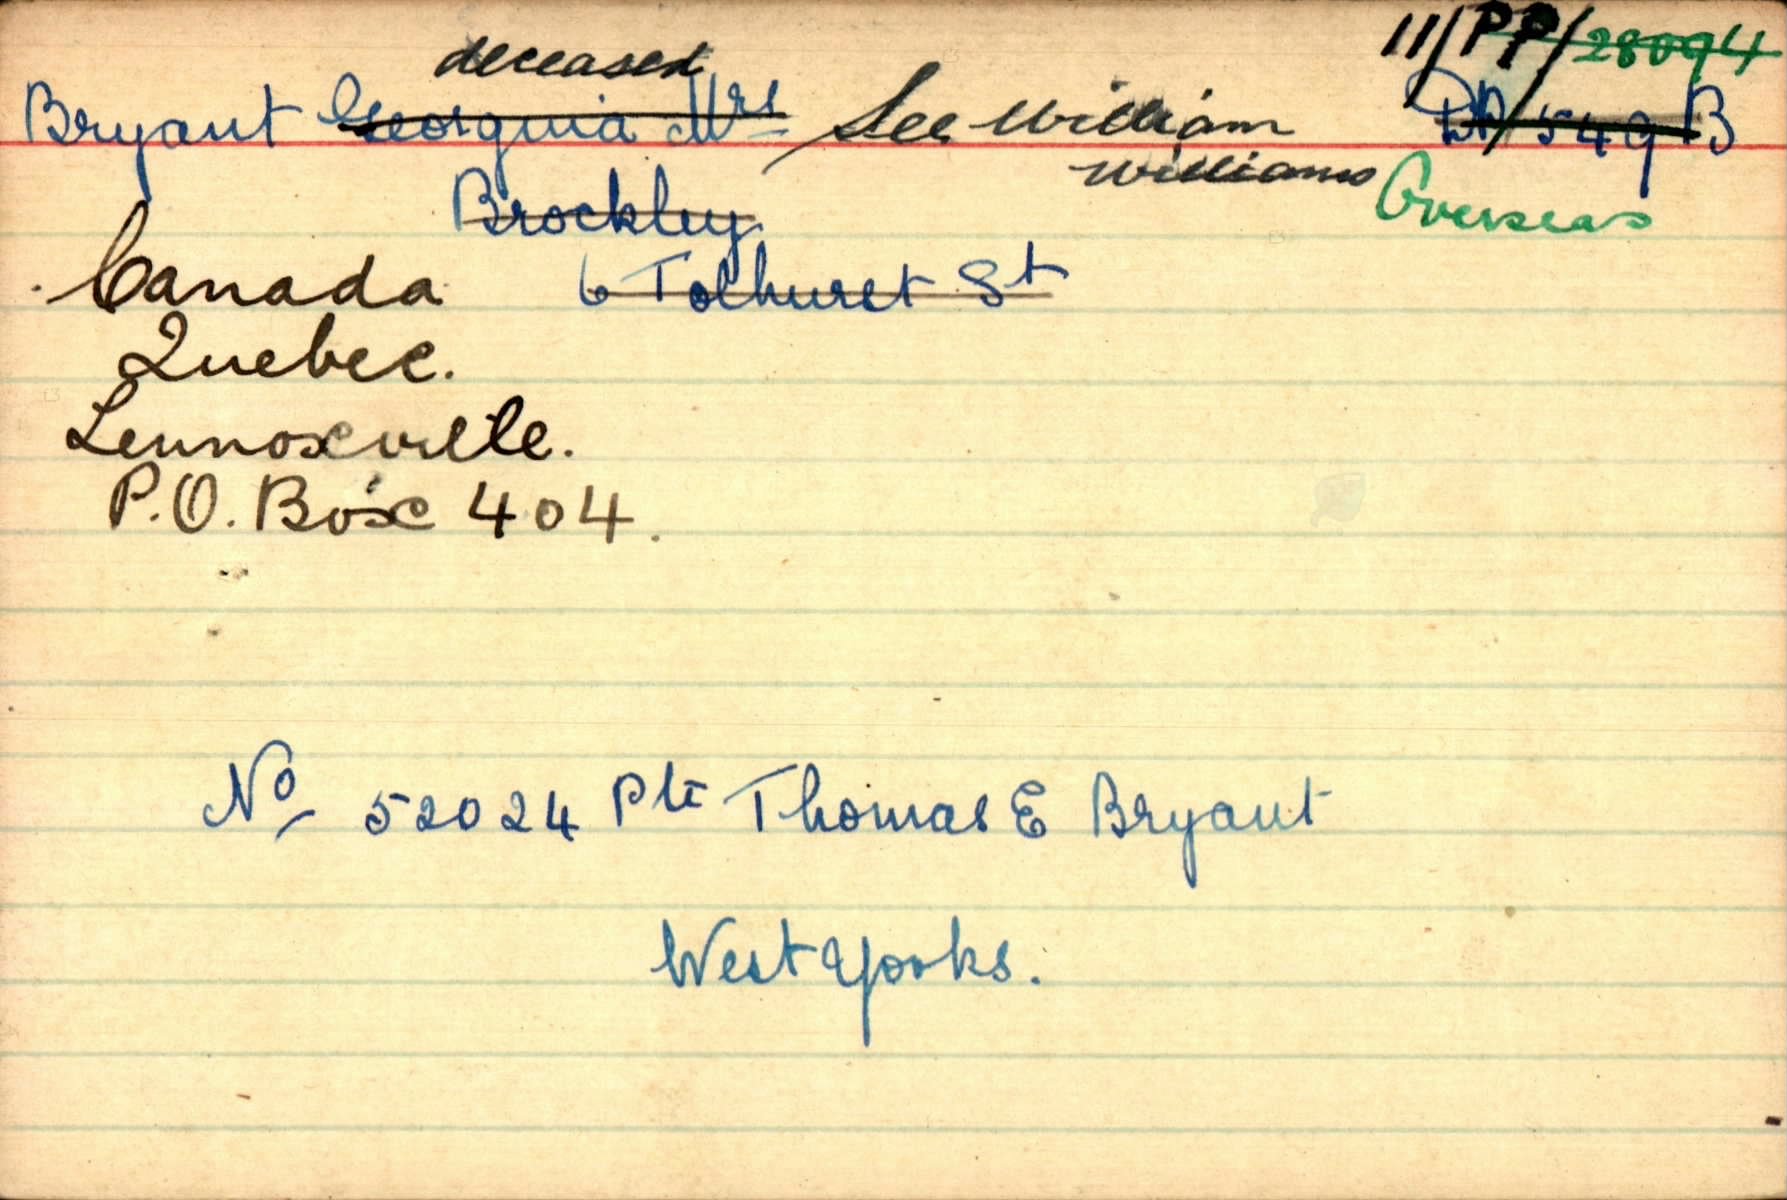 deceased
11/PP/28094
Bryant Georguia Mrs See William
549B
Williams
Brockley
Overseas
Canada
6 Tolhurst St
Quebec.
Lennoxville.
P.O. Box 404.
No 52024 Pte Thomas E Bryant
West Yorks.